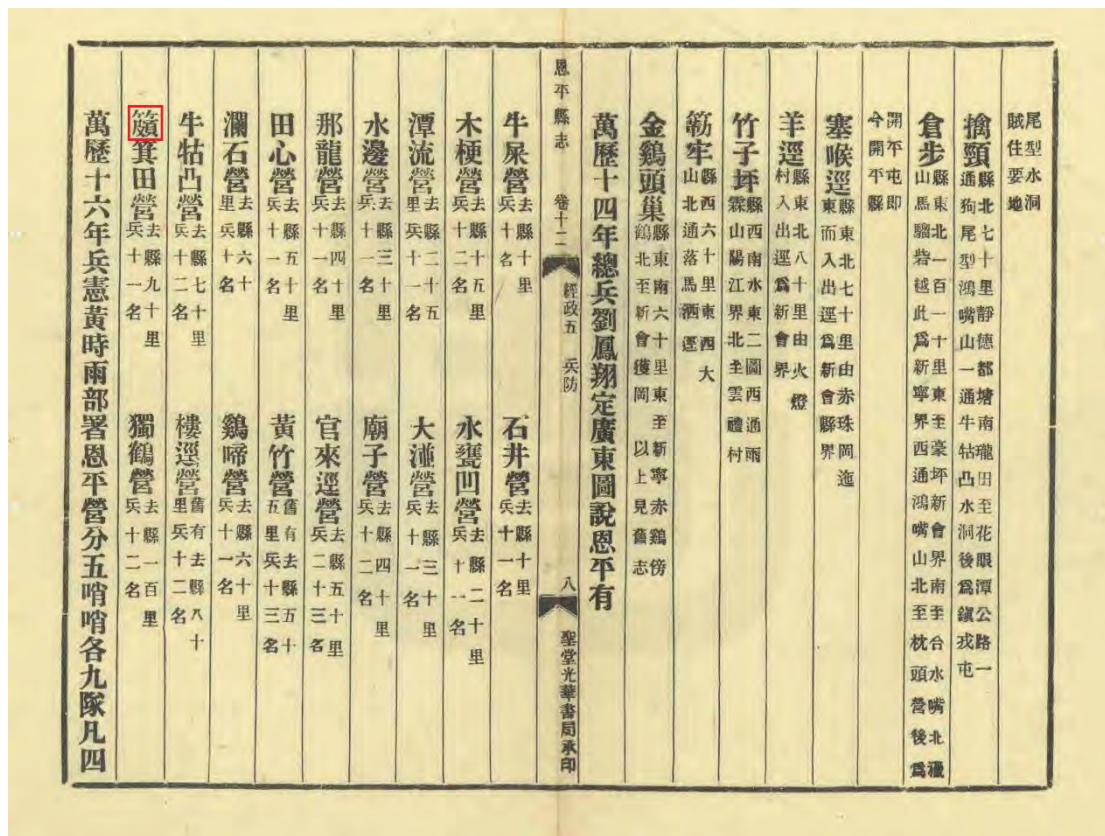 尾型水洞
賊住要地
擒頸縣北七十里靜德都塘南瓏田至花眼潭公路一
通狗尾型鴻嘴山一通牛牯凸水洞後爲鎭戎屯
倉步縣東北一百一十里東至豪坪新會界南至台水嘴北
山馬騮砦越此爲新寧界西通鴻嘴山北至枕頭營後爲
開平屯即
今開平縣
塞喉逕縣東北七十里由赤珠岡迤
東而入出逕爲新會縣界
羊逕縣東北八十里由火燈
村入出逕爲新會界
竹子坪縣西南水東二圖西通雨
霖山陽江界北至雲禮村
笏牢縣西六十里東西大
山北通落馬洒逕
金鷄頭巢縣東南六十里東至新寧赤鷄傍
鶴北至新會獲岡　以上見舊志
萬歷十四年總兵劉鳳翔定廣東圖說恩平有
恩平縣志　卷十二　經政五　兵防　八　聖堂光華書局承印
牛屎營去縣十里
兵十名
石井營去縣十里
兵十一名
木梗營去縣十五里
兵十二名
水甕凹營去縣二十里
兵十一名
潭流營去縣二十五
里兵十一名
大湴營去縣三十里
兵十一名
水邊營去縣三十里
兵十一名
廟子營去縣四十里
兵十二名
那龍營去縣四十里
兵十一名
官來逕營去縣五十里
兵二十三名
田心營去縣五十里
兵十一名
黃竹營舊有去縣五十
五里兵十三名
瀾石營去縣六十
里兵十名
鷄啼營去縣六十里
兵十一名
牛牯凸營去縣七十里
兵十二名
樓逕營舊有去縣八十
里兵十二名
箕田營去縣九十里
兵十一名
獨鶴營去縣一百里
兵十二名
萬歷十六年兵憲黃時雨部署恩平營分五哨哨各九隊凡四